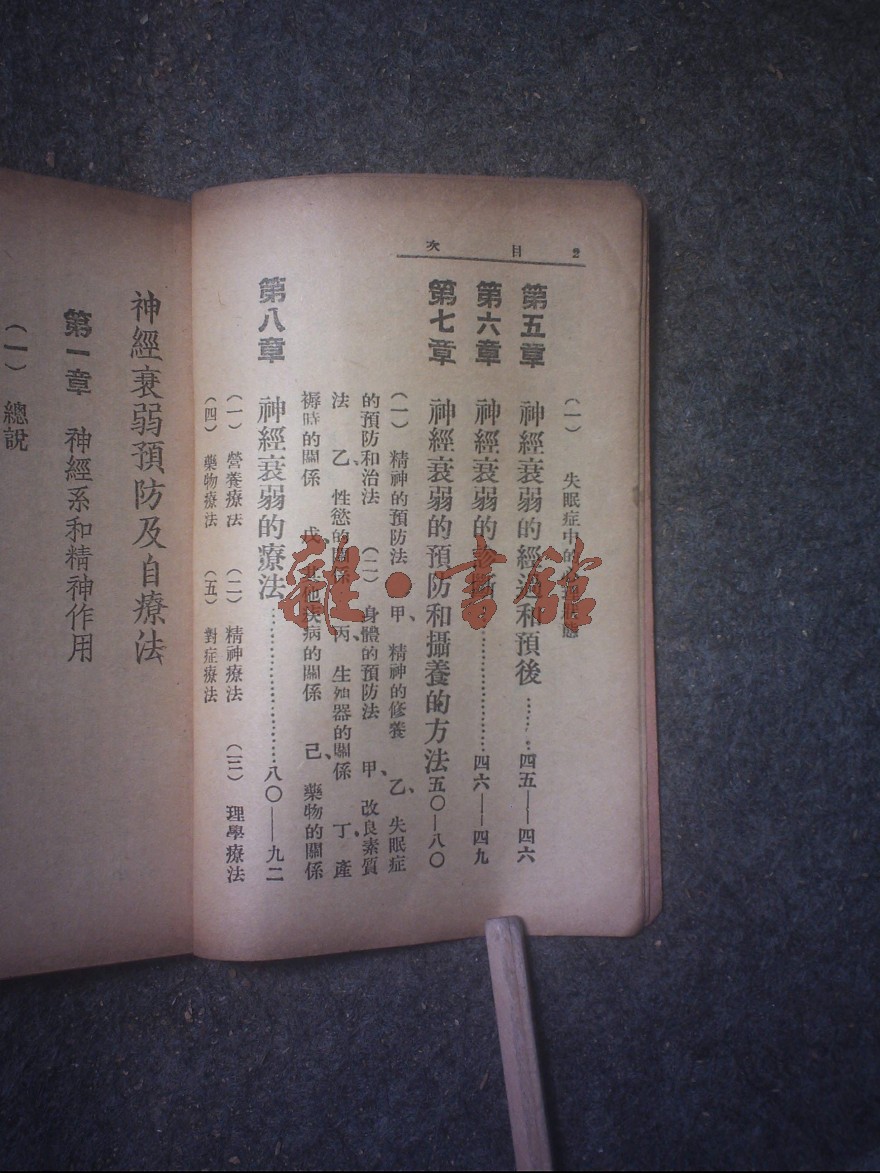 2 目次
（一） 失眠症中的心理狀態
第五章 神經衰弱的經過和預後……四五——四六
第六章 神經衰弱的診斷…………四六——四九
第七章 神經衰弱的預防和攝養的方法五〇——八〇
（一）精神的預防法 甲、精神的修養 乙、失眠症
的預防和治法 （二）身體的預防法 甲、改良素質
法 乙、性慾的關係 丙、生殖器的關係 丁、產
褥時的關係 戊、其他疾病的關係 己、藥物的關係
第八章 神經衰弱的療法……………………八〇——九二
（一）營養療法 （二）精神療法 （三）理學療法
（四）藥物療法 （五）對症療法
神經衰弱預防及自療法
第一章 神經系和精神作用
（一）總說
雜·書館